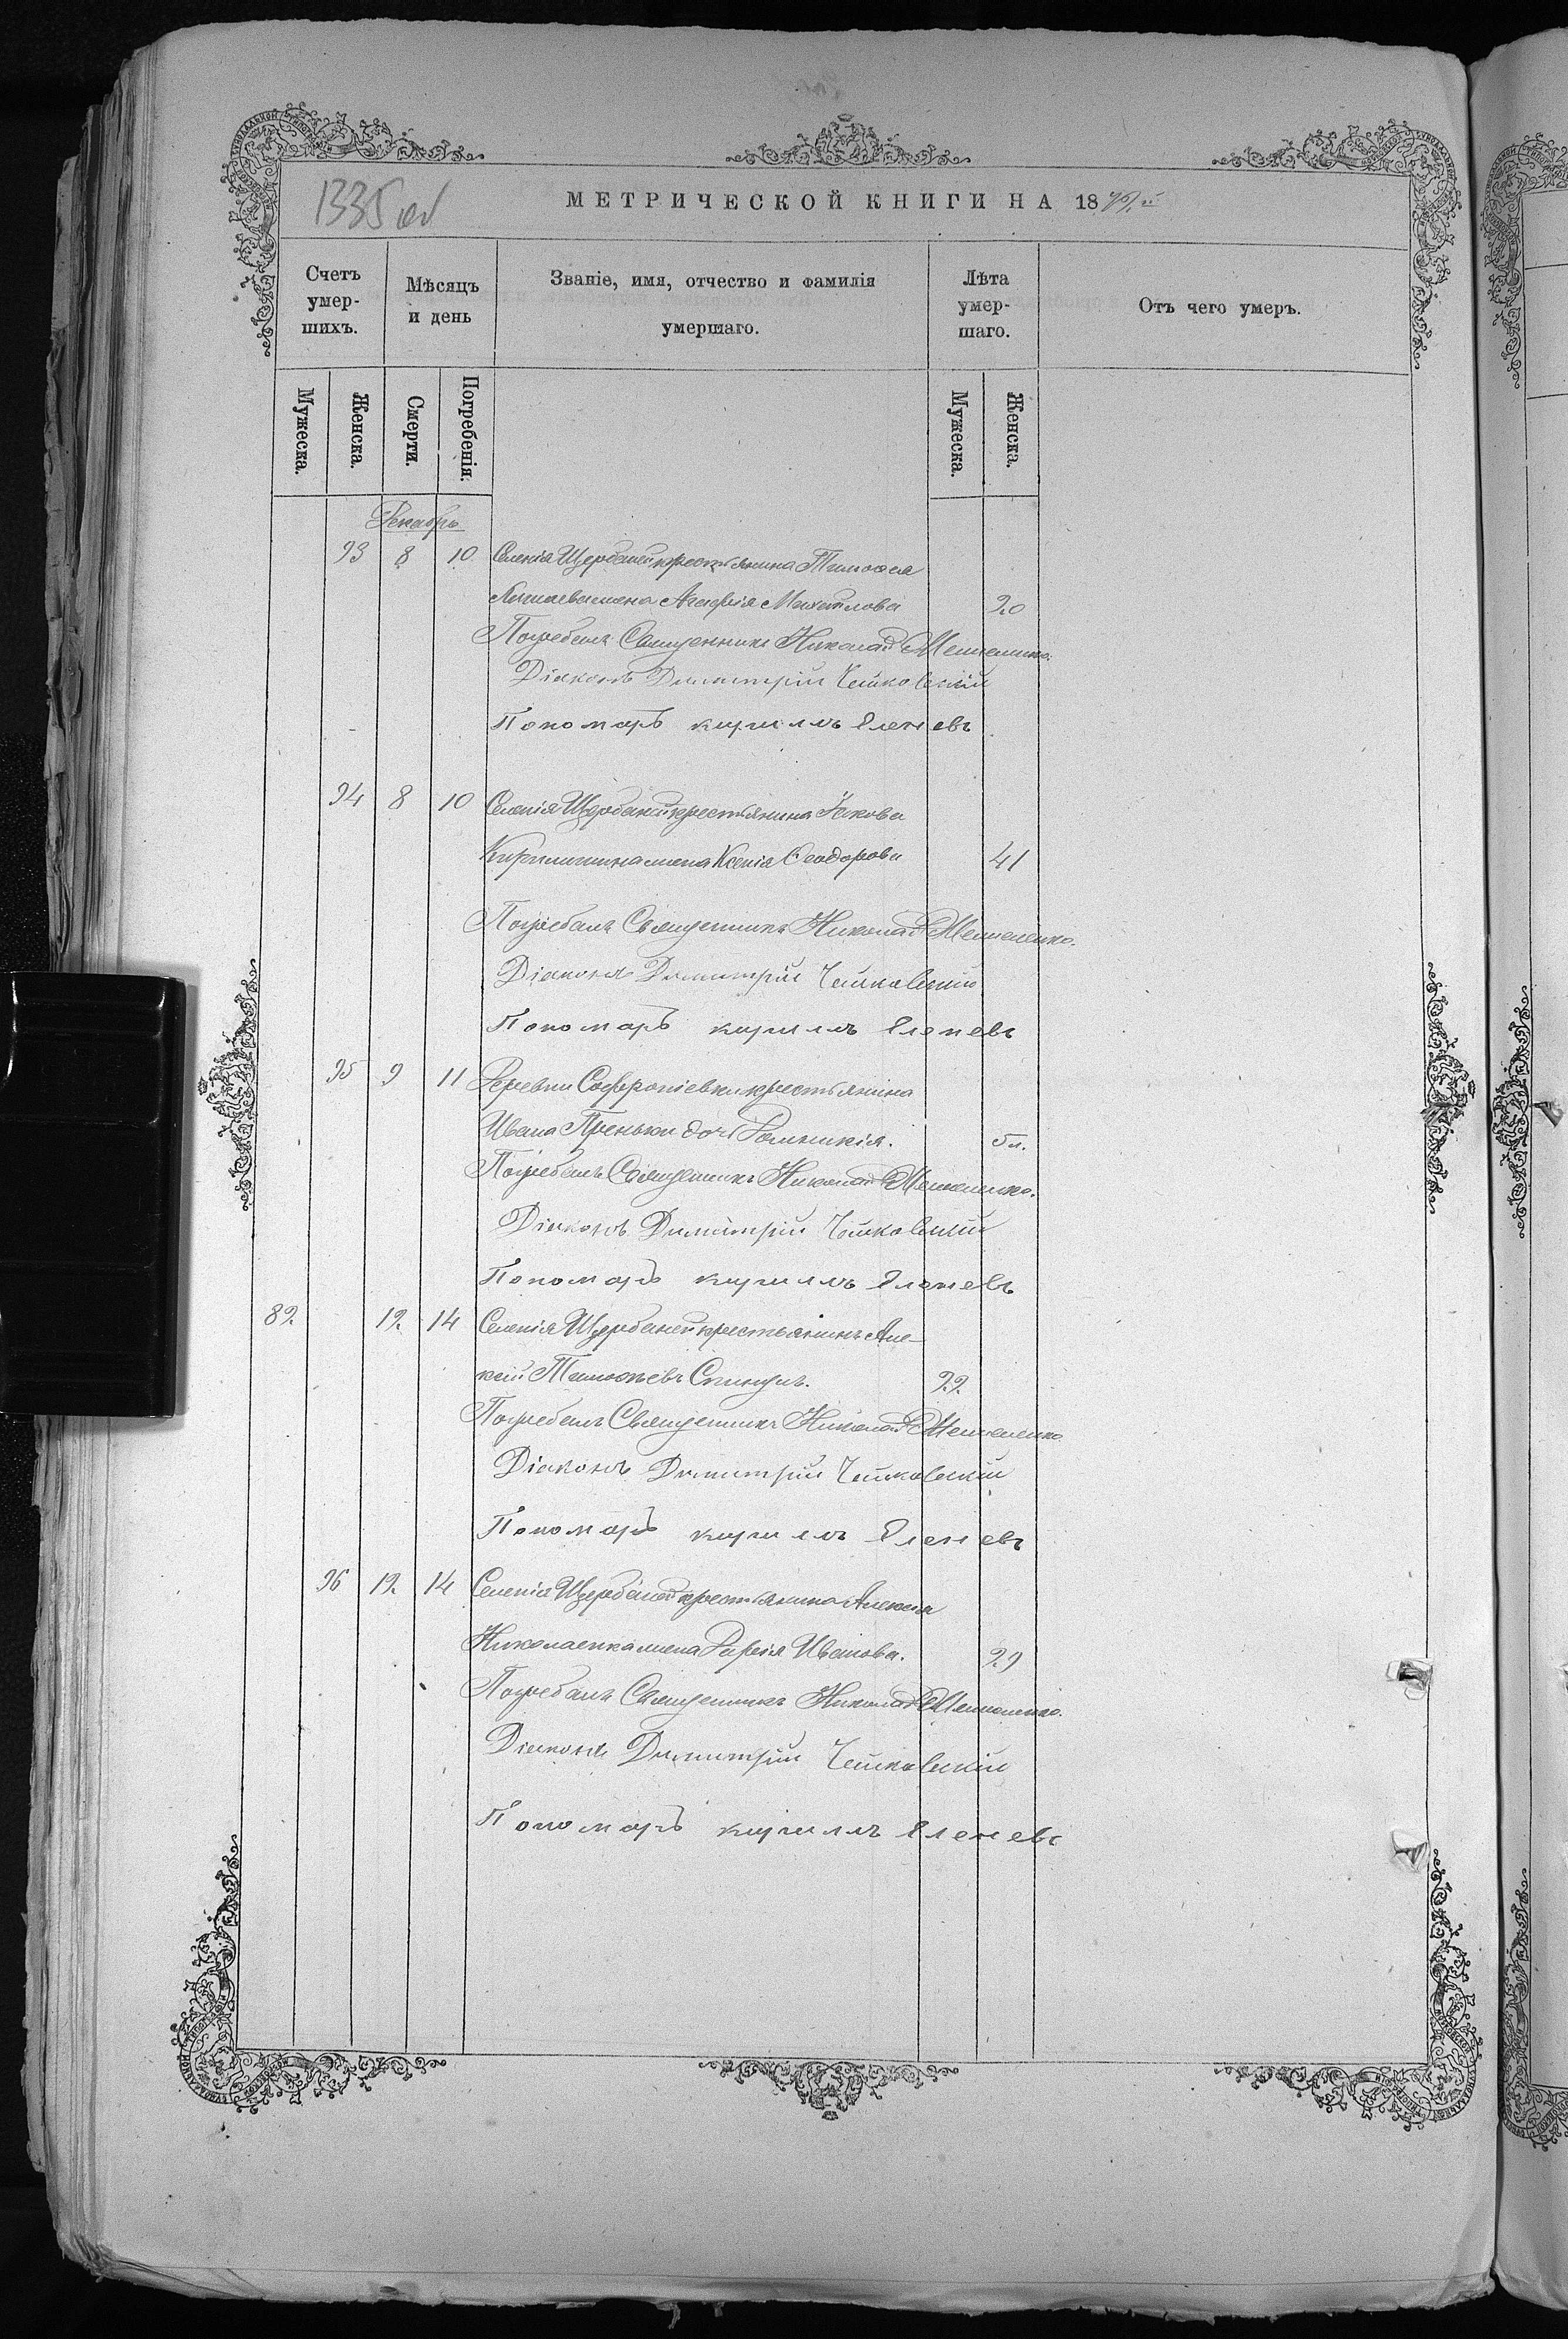 1335 об
МЕТРИЧЕСКОЙ КНИГИ НА 187
Счетъ умер-шихъ.
Мѣсяцъ и день
Званіе, имя, отчество и фамилія умершаго.
Лѣта умер-шаго.
Отъ чего умеръ.
Мужеска.
Женска.
Смерти.
Погребенія.
Мужеска.
Женска.
Декабрь
93 8 10 Селенія Щербаней крестьянина Тимофея
жена Агафія Михайлова 20
Погребалъ Священникъ Николай
Діаконъ Димитрій Чайковскій
Пономарь кирилъ Еленевъ
94 8 10 Селенія Щербаней крестьянина Іякова
жена Ксенія Феодорова 41
Погребалъ Священникъ Николай
Діаконъ Димитрій Чайковскій
Пономарь кирилъ Еленевъ
95 9 11 Деревни Софроніевки крестьянина
Ивана Преньки дочь Домникія. 5 л.
Погребалъ Священникъ Николай
Діаконъ Димитрій Чайковскій
Пономарь кирилъ Еленевъ
82 12 14 Селенія Щербаней крестьянинъ Але-
ксій Тимофѣевъ 22
Погребалъ Священникъ Николай
Діаконъ Димитрій Чайковскій
Пономарь кирилъ Еленевъ
96 12 14 Селенія Щербаней крестьянина Алексія
Николаенка жена Дарія Иванова. 29
Погребалъ Священникъ Николай
Діаконъ Димитрій Чайковскій
Пономарь кирилъ Еленевъ